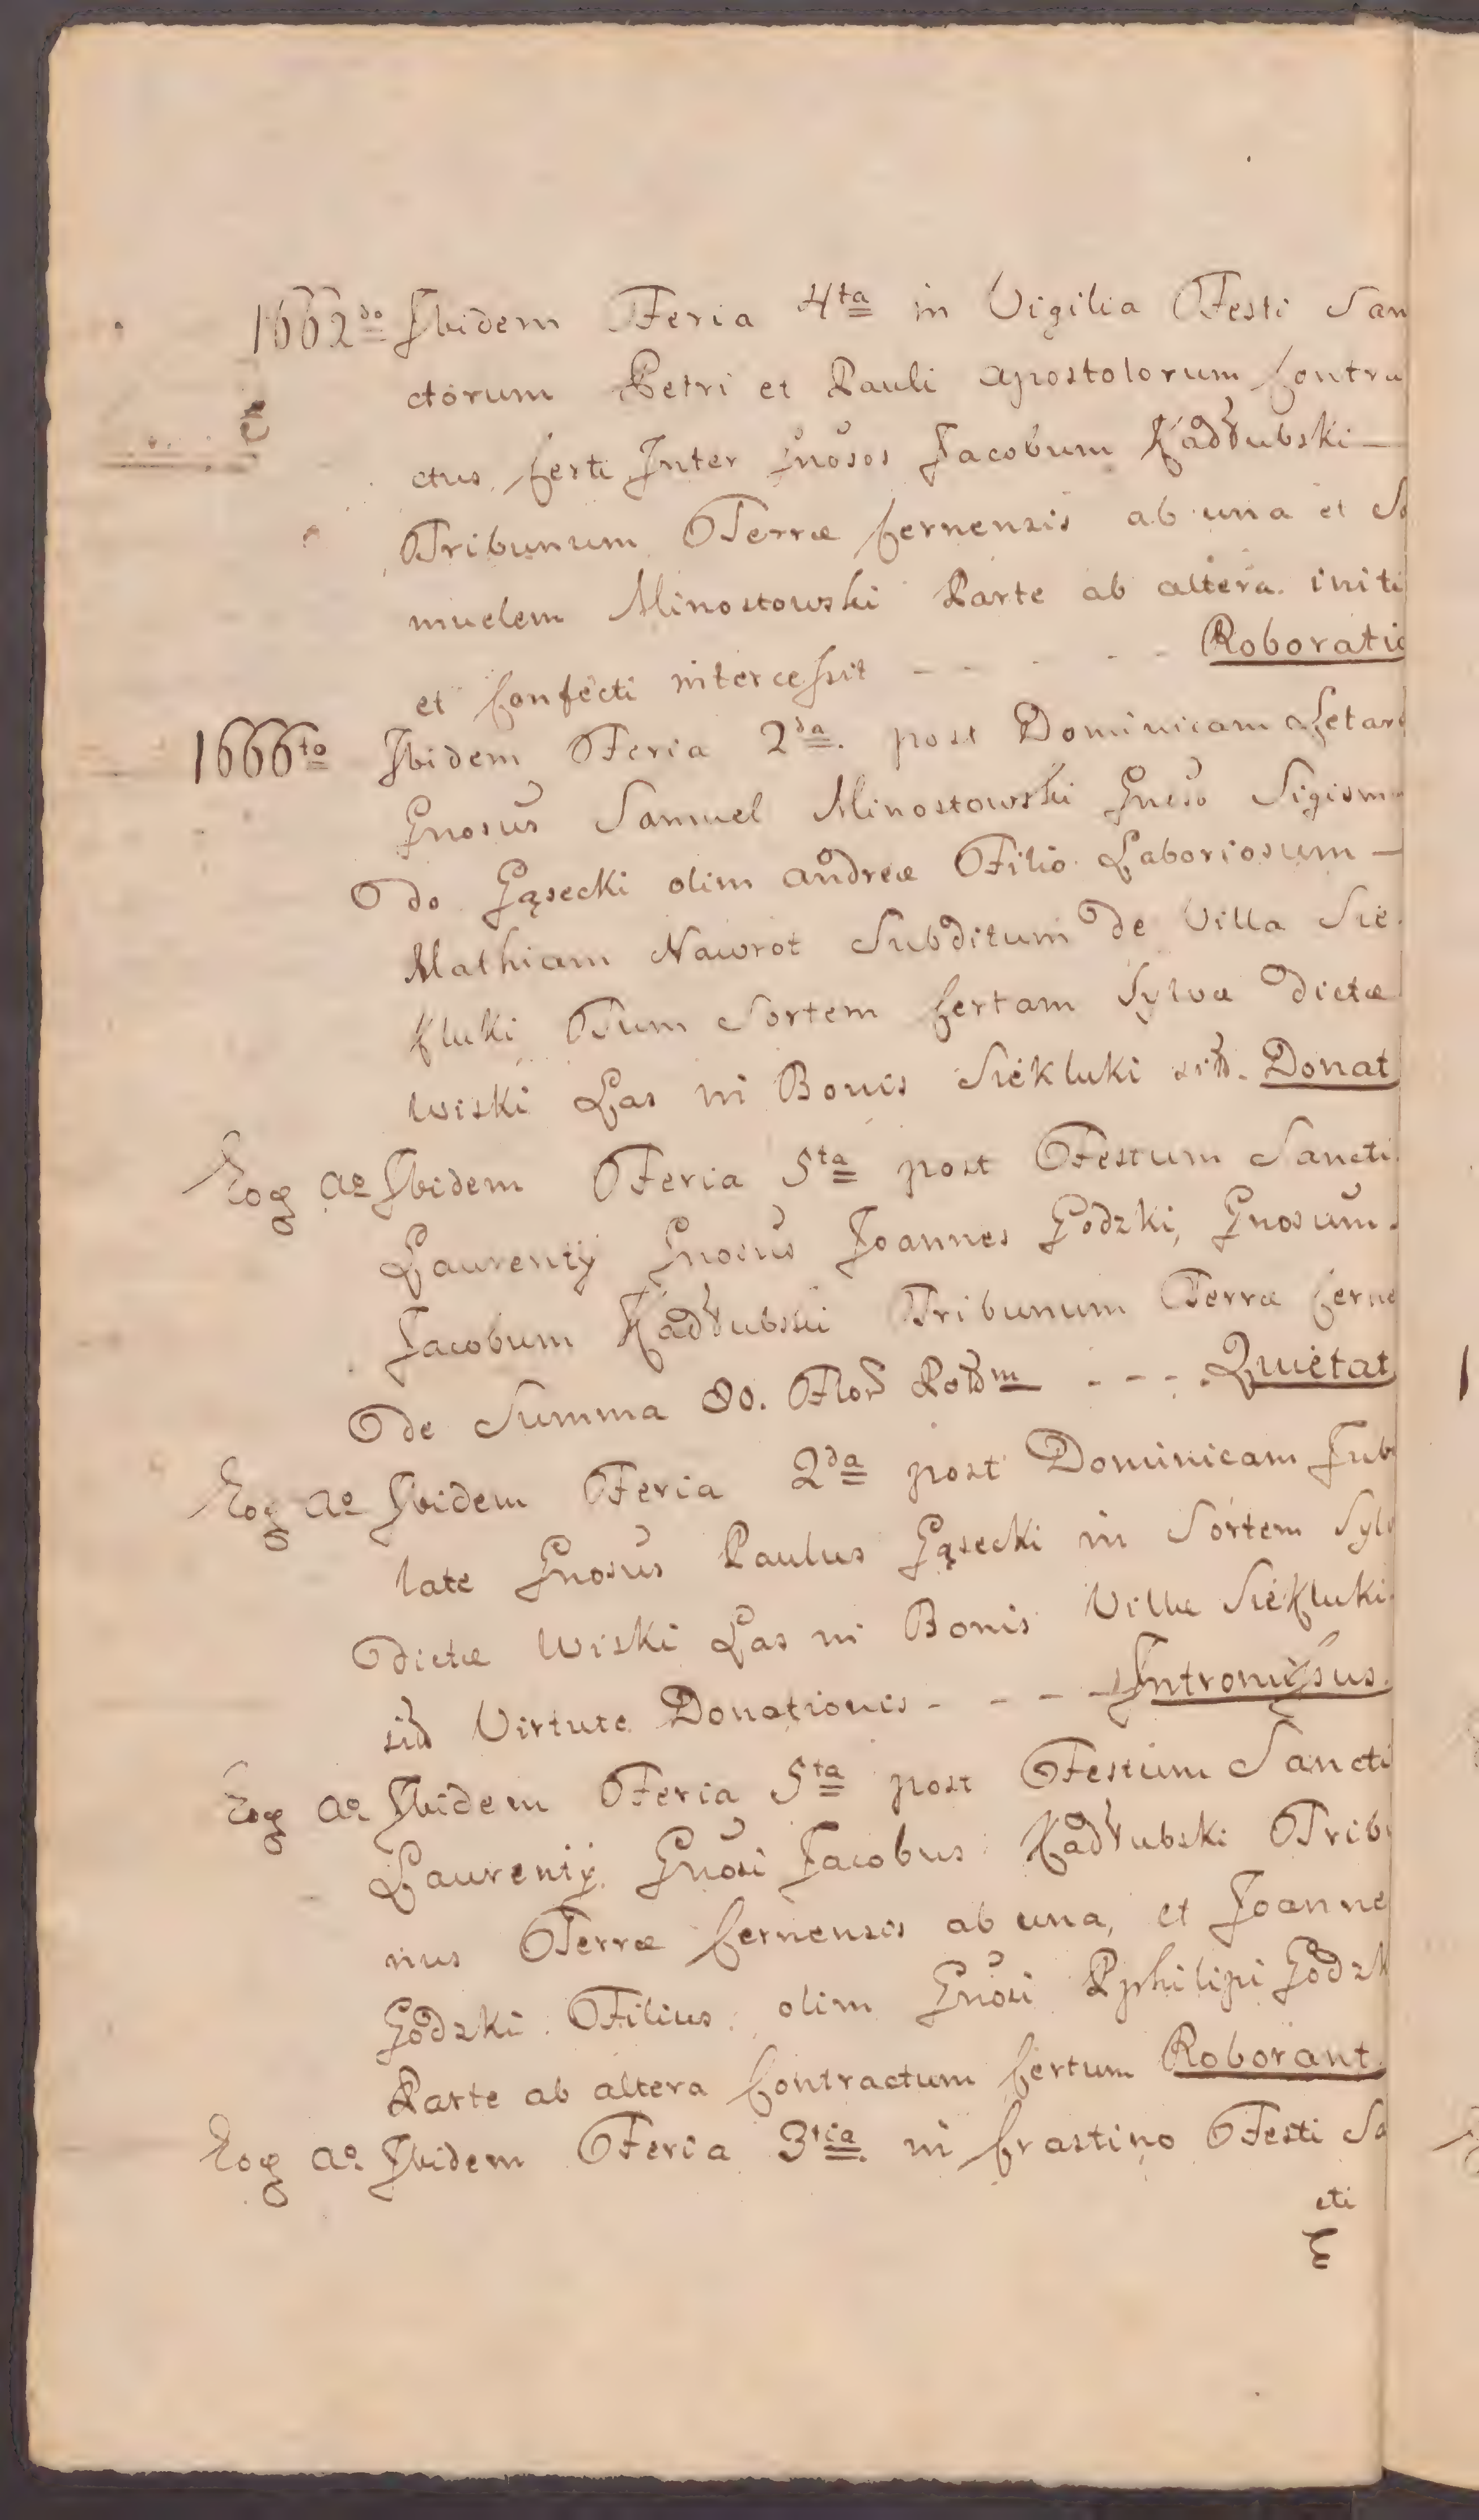 1662do Ibidem Feria 4ta in Vigilia Festi San
ctorum Petri et Pauli Apostolorum Contra
ctus Certi Inter Gnosos Jacobum Kadłubski —
Tribunum Terræ Cernensis ab una et Sa
muelem Minostowski Parte ab altera initi
et Confecti intercessit - - - - - Roboratio
1666to Ibidem Feria 2da post Dominicam Letare
Gnosus Samuel Minostowski Gneso Sigismu
do Gąsecki olim Andreæ Filio Laboriosum —
Mathiam Nawrot Subditum de Villa Sie
kluki Tum Sortem Certam Sylvæ dictæ
Wiski Las in Bonis Siekluki sit. Donat
Eog Ao Ibidem Feria 5ta post Festum Sancti
Laurentij Gnosus Joannes Godzki, Gnosum
Jacobum Kadłubski Tribunum Terræ Cerne
de Summa 80. Flor Polm - - - . Quietat
Eog Ao Ibidem Feria 2da post Dominicam Jubi
late Gnosus Paulus Gąsecki in Sortem Sylv
dictæ Wiski Las in Bonis Villæ Siekluki
sit Virtute Donationis - - - - Intromissus.
Eog Ao Ibidem Feria 5ta post Festum Sancti
Laurentij Gnosi Jacobus Kadłubski Tribu
nus Terræ Cernensis ab una, et Joanne
Godzki Filius olim Gnosi Pphilipi Godzk
Parte ab altera Contractum Certum Roborant.
Eog Ao Ibidem Feria 3tia in Crastino Festi Sa
cti